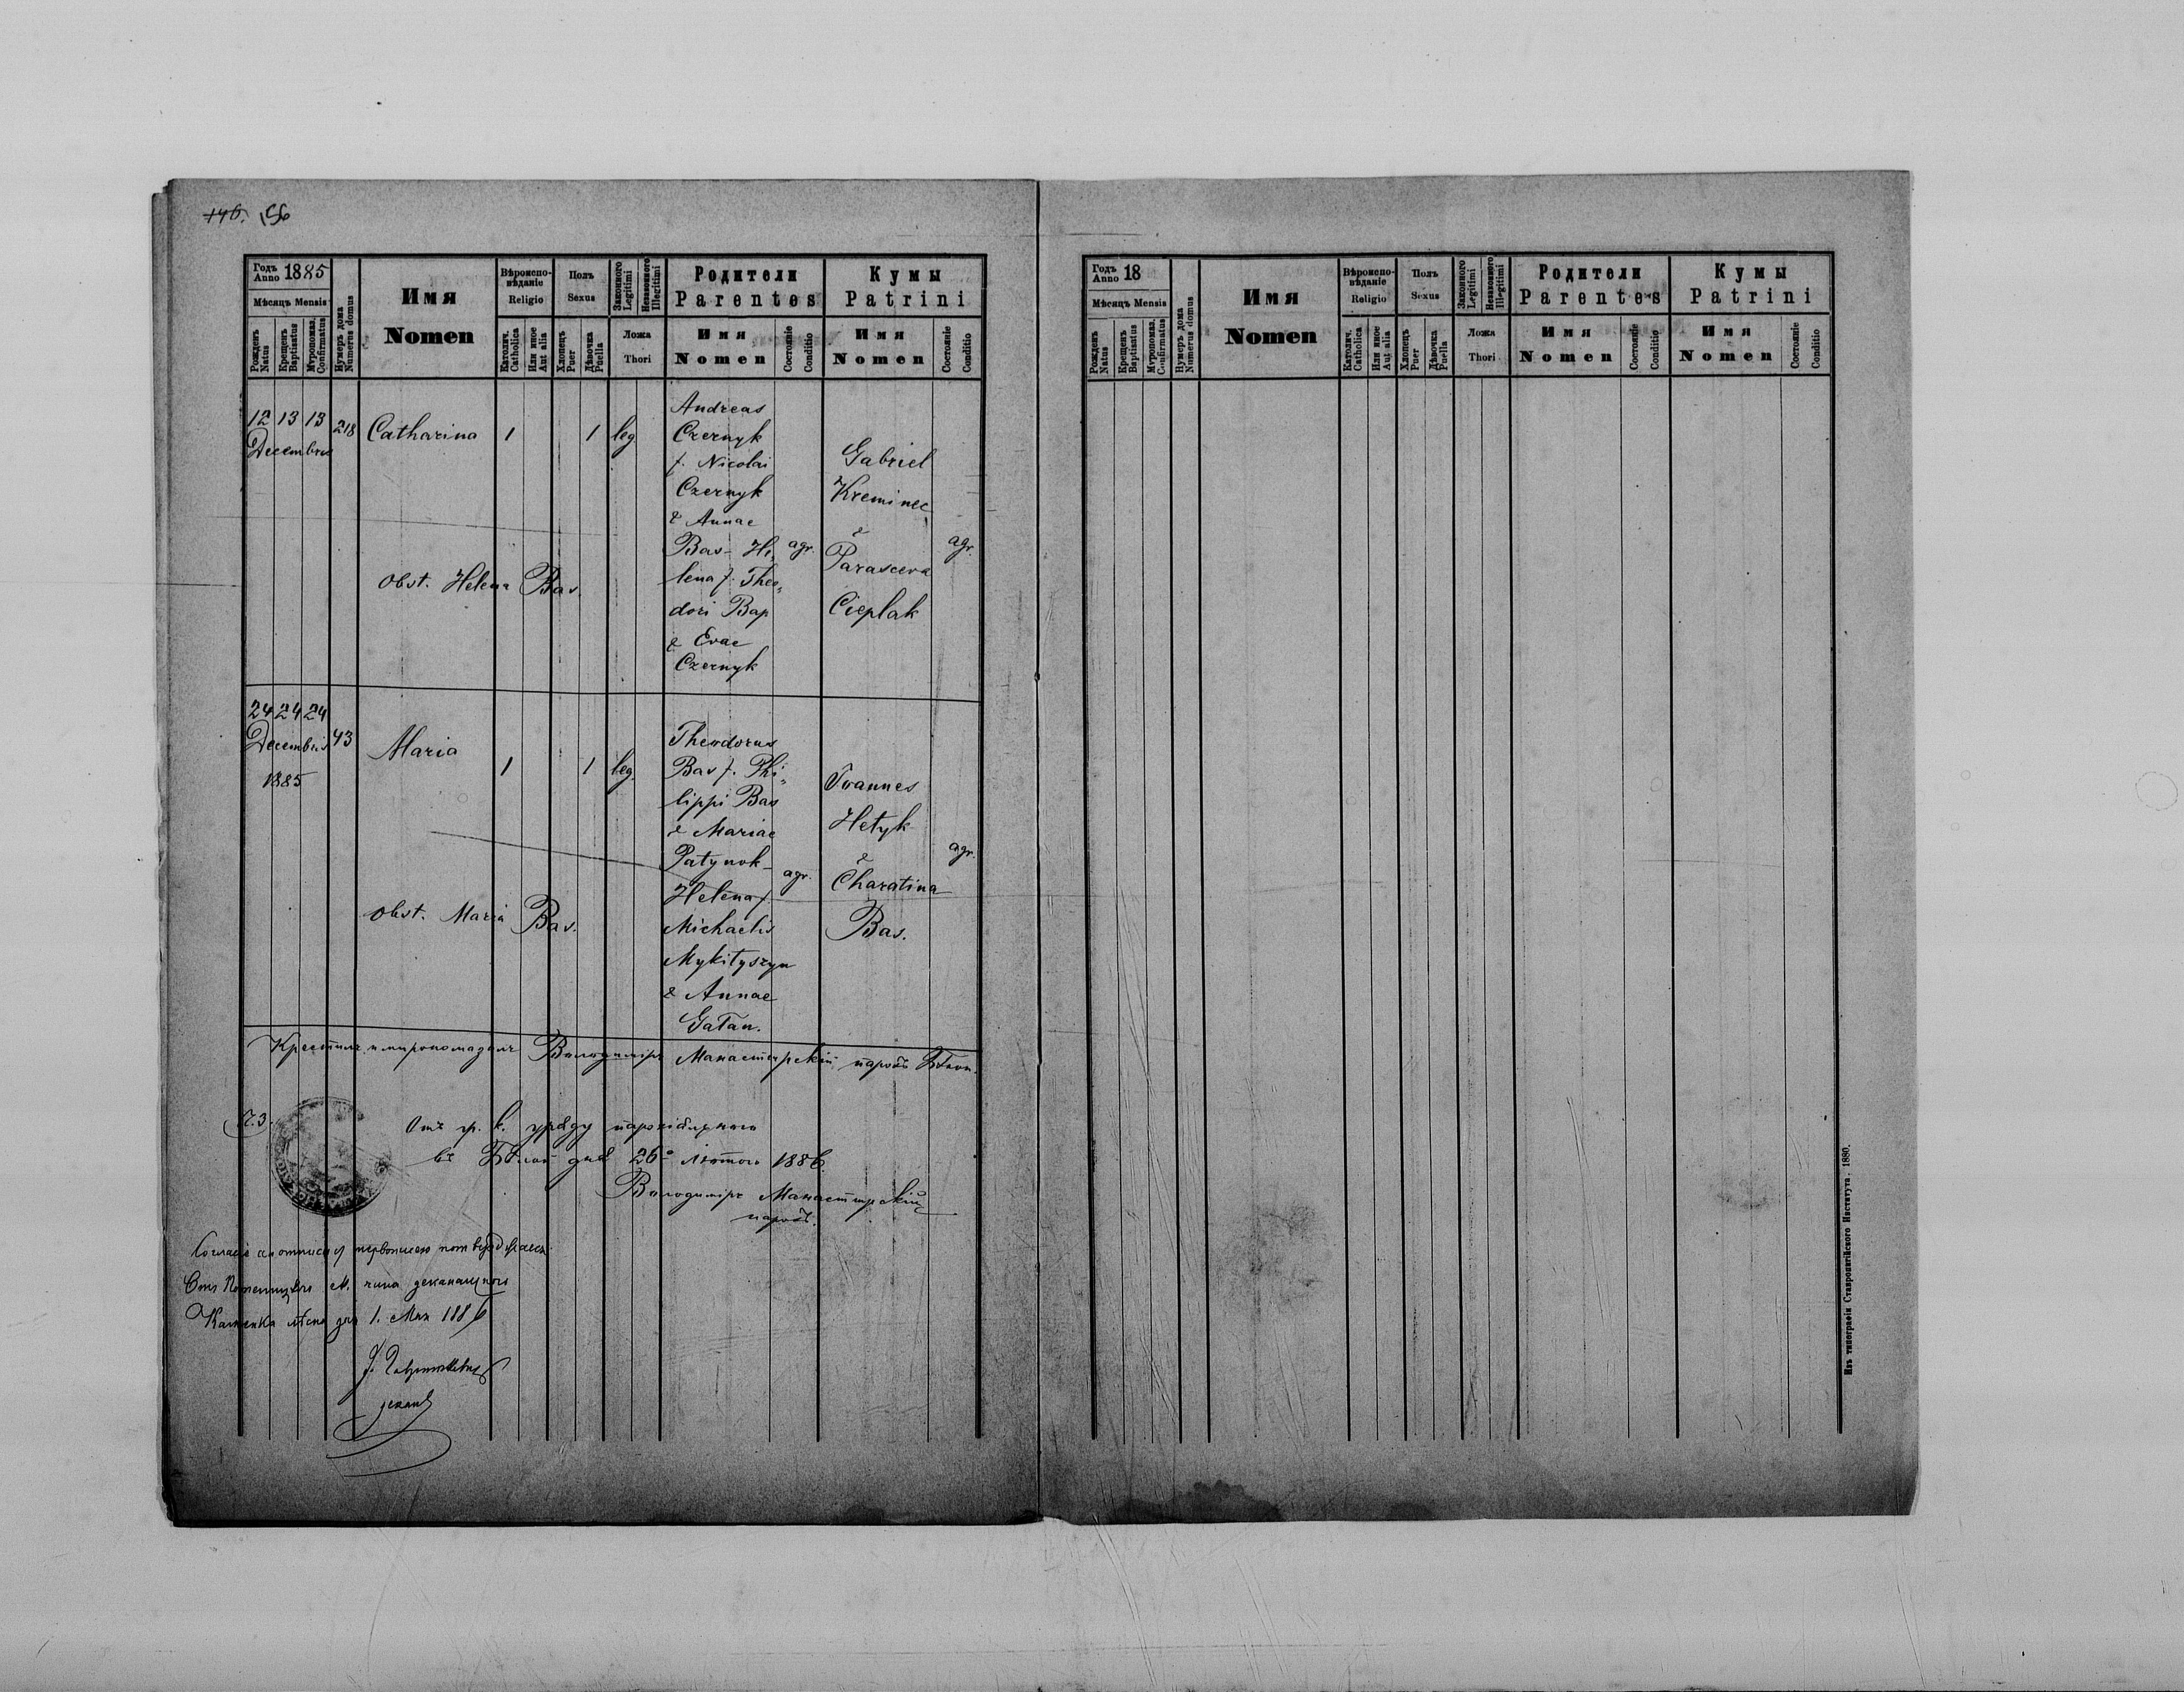 146.
Годъ Anno 1885
Мѣсяцъ Mensis
Рожденъ Natus
Крещенъ Baptisatus
Мѵропомаз. Confirmatus
Нумеръ дома Numerus domus
Имя
Nomen
Вѣроиспо-
вѣданіе
Religio
Католич. Catholica
Или иное Aut alia
Полъ
Sexus
Хлопець Puer
Дѣвочка Puella
Законного Legitimi
Незаконного Illegitimi
Ложа
Thori
Родители
Parentes
Имя
Nomen
Состояніе Conditio
Кумы
Patrini
Имя
Nomen
Состояніе Conditio
12 13 13
Decembris
218
Catharina
1
1
leg
Andreas
Czernyk
f. Nicolai
Czernyk
& Annae
Bas - He
lena f. Theo„
dori Bap
& Evae
Czernyk
agr.
Gabriel
Kreminec
&
Parasceva
Cieplak
agr.
Obst. Helena Bas.
24 24 24
Decembris
1885
43
Maria
1
1
leg.
Theodorus
Bas f. Phi„
lippi Bas
& Mariae
Patynok -
Helena f.
Michaelis
Mykityszyn
& Annae
Gatan.
agr.
Ivannes
Hetyk
&
Charatina
Bas.
agr.
Obst. Maria Bas.
Крестилъ и миропомазалъ Володимiръ Манастирскiй парохъ
Л.З.
Отъ гр. к. уряду парохіяльного
въ Бѣлой дня 26º Лютого 1886
Володимiръ Манастирскiй
парохъ.
1. Мая 1886
деканъ
Годъ Anno 18
Мѣсяцъ Mensis
Рожденъ Natus
Крещенъ Baptisatus
Мѵропомаз. Confirmatus
Нумеръ дома Numerus domus
Имя
Nomen
Вѣроиспо-
вѣданіе
Religio
Католич. Catholica
Или иное Aut alia
Полъ
Sexus
Хлопець Puer
Дѣвочка Puella
Законного Legitimi
Незаконного Illegitimi
Ложа
Thori
Родители
Parentes
Имя
Nomen
Состояніе Conditio
Кумы
Patrini
Имя
Nomen
Состояніе Conditio
Изъ типографіи Ставропигійского Института. 1880.